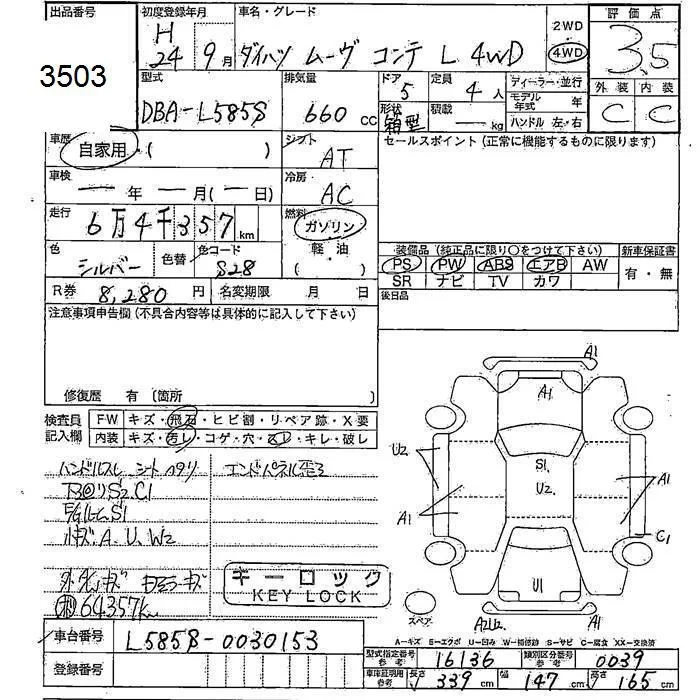 出品番号
3503
初度登録年月
H
24 9月
車名・グレード
ダイハツ ムーヴ コンテ L 4WD
2WD
4WD
評価点
3.5
外装 内装
C C
型式
DBA-L585S
排気量
660 cc
ドア
5
形状
箱型
定員
4 人
積載
— kg
ディーラー・並行
モデル年式 年
ハンドル 左・右
車歴
自家用・( )
シフト
AT
セールスポイント (正常に機能するものに限ります)
車検
— 年 — 月(— 日)
冷房
AC
走行
6万4千357 km
燃料
ガソリン
軽・油
( )
色
シルバー
色替
色コード
S28
装備品 (純正品に限り○をつけて下さい)
新車保証書
PS PW ABS エアB AW
SR ナビ TV カワ
有・無
R券 8,280 円
名変期限 月 日
後日品
注意事項申告欄 (不具合内容等は具体的に記入して下さい)
修復歴 有 〔箇所
検査員記入欄
FW キズ・飛石・ヒビ割・リペア跡・X要
内装 キズ・汚レ・コゲ・穴・スレ・キレ・破レ
ハンドルスレ シートヘタリ
エンドパネル歪ミ
S2 C1
S1
小キズ.A.U.W2
64357km
キーロック
KEY LOCK
A1
A1
U2
S1
U2
A1
A1
C1
U1
スペア
A2U2
A1
A-キズ E-エクボ U-凹み W-補修跡 S-サビ C-腐食 XX-交換済
車台番号 L585S-0030153
型式指定番号参考 16136
類別区分番号参考 0039
登録番号
車庫証明用参考
長さ 339 cm
幅 147 cm
高さ 165 cm